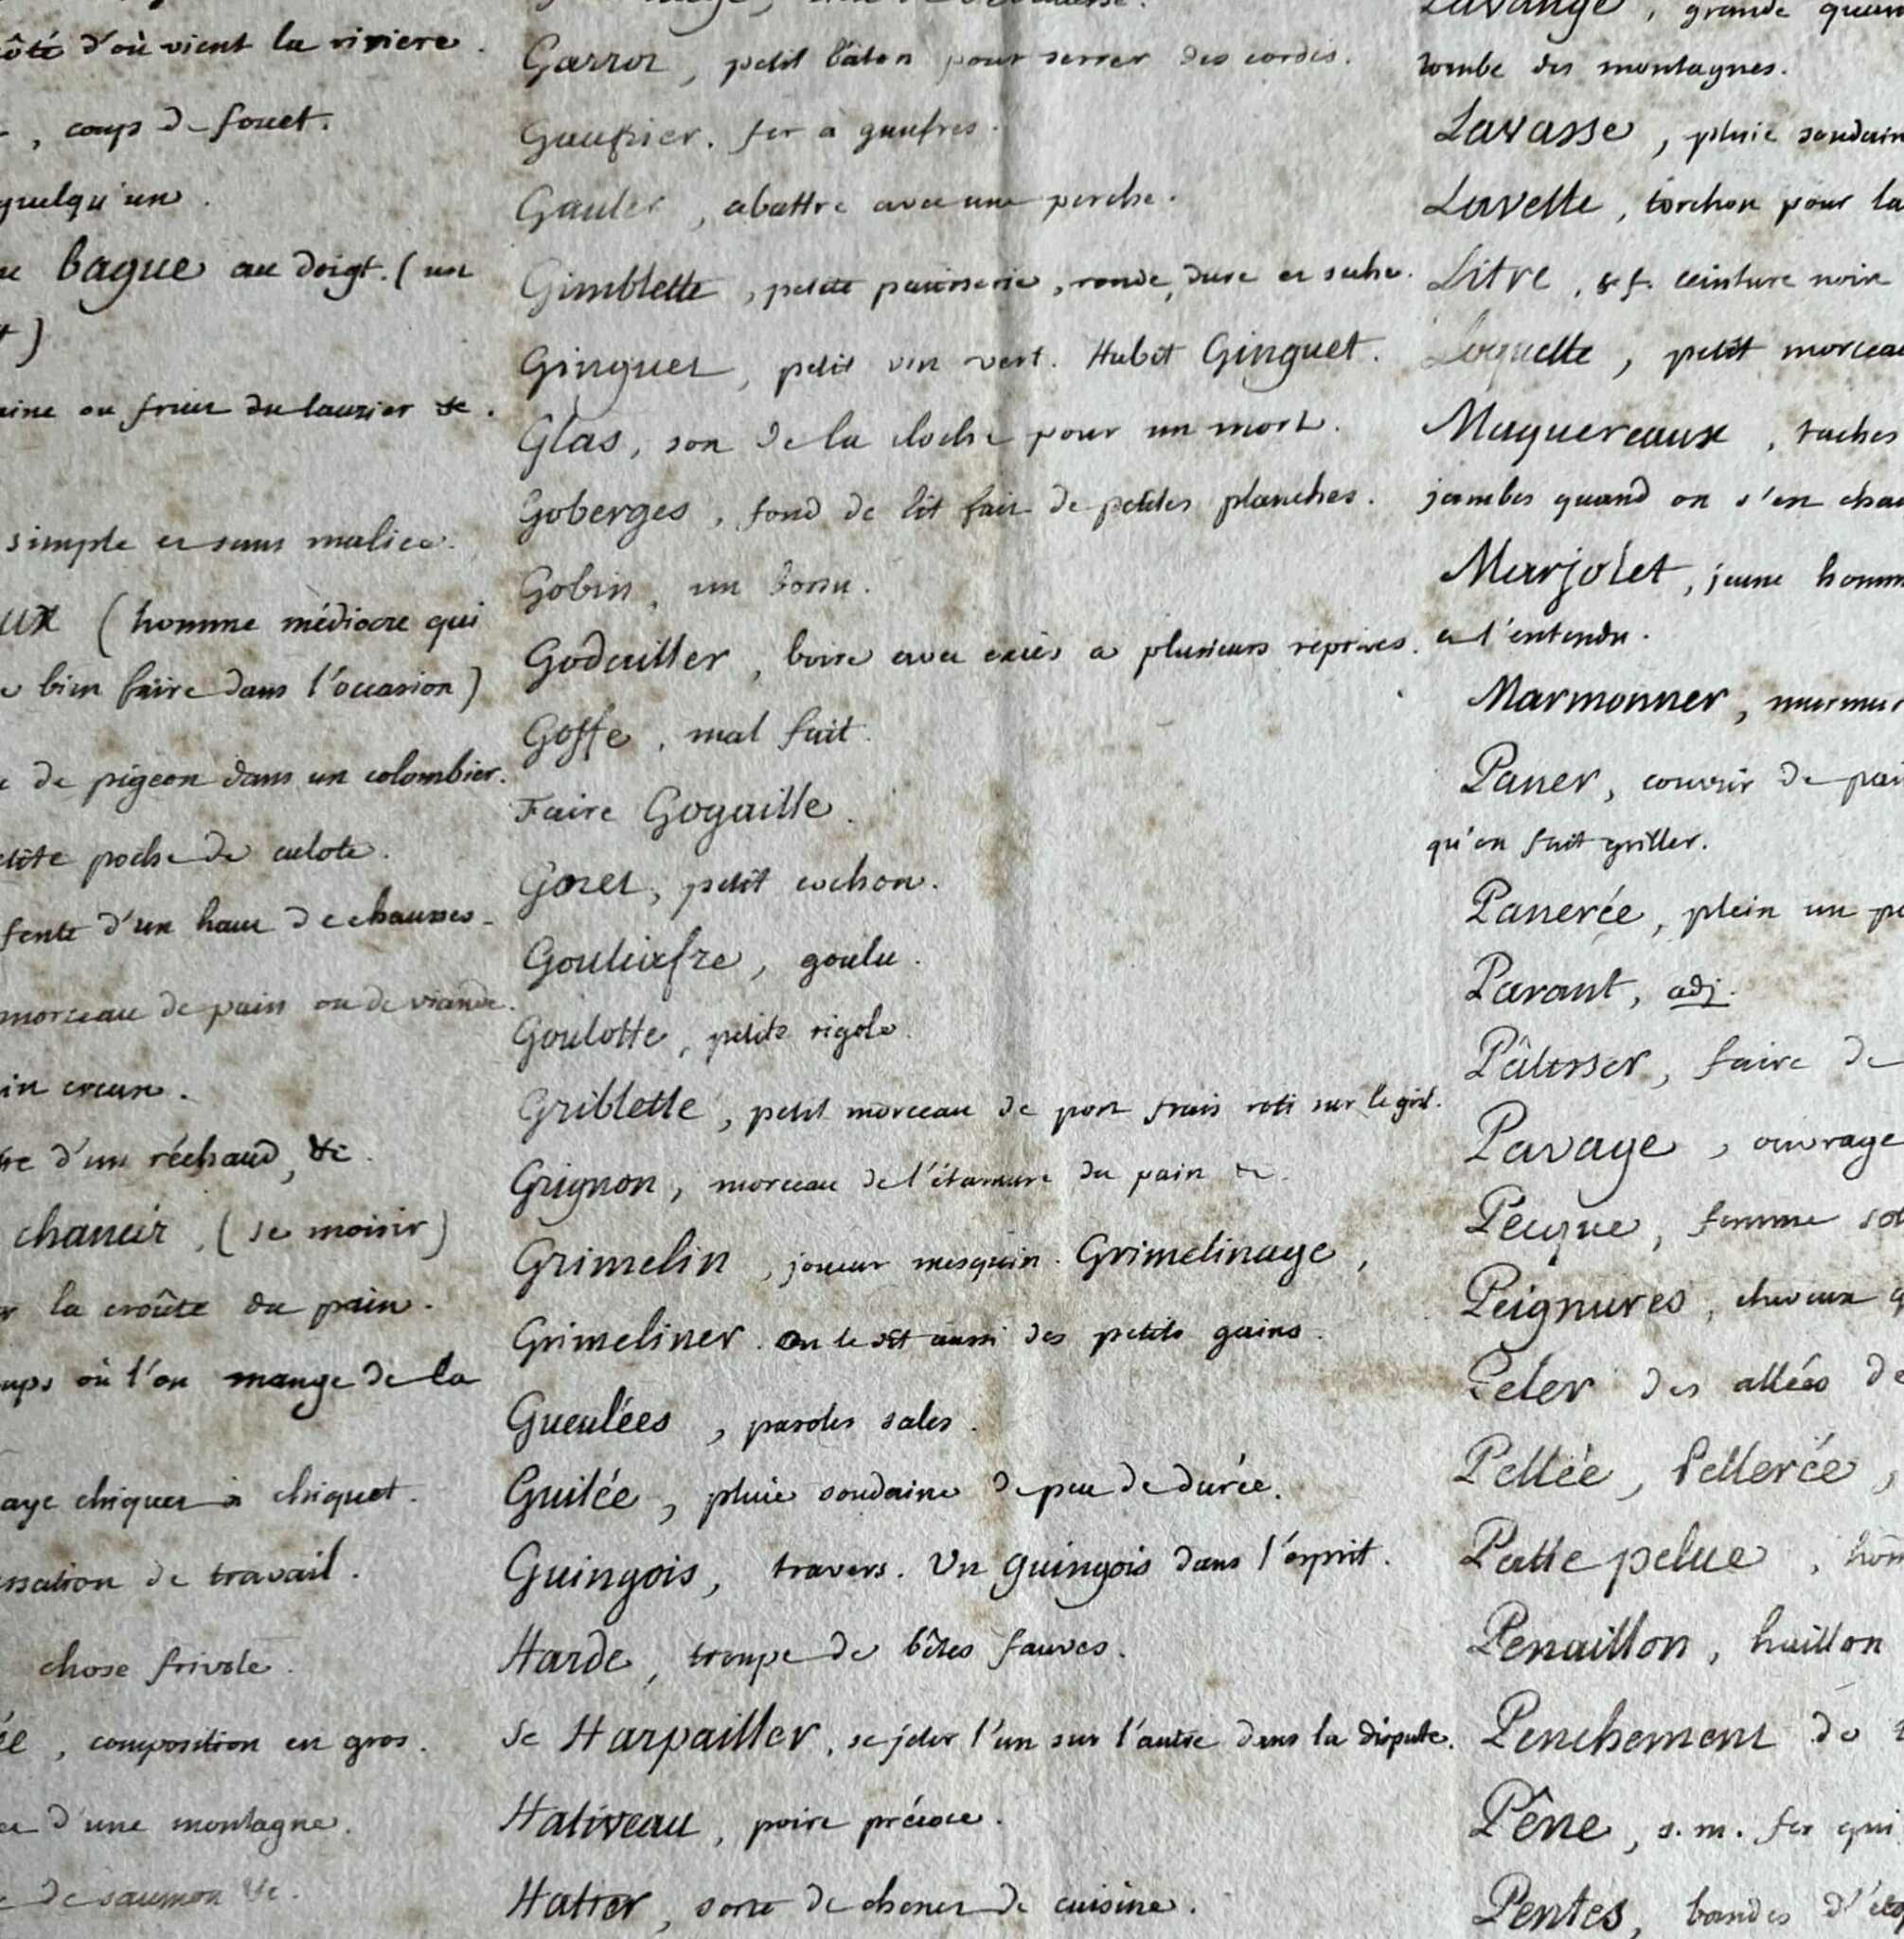 côté d'où vient la riviere.
, coup de fouet.
quelqu'un.
bague au doigt. (un
)
ou fruit du laurier &c.
simple et sans malice.
ux (homme médiocre qui
bien faire dans l'occasion)
de pigeon dans un colombier.
poche de culote.
fente d'un haut de chausses.
morceau de pain ou de viande.
in creux.
d'un réchaud, &c.
chancir, (se moisir)
la croûte du pain.
où l'on mange de la
chiquet à chiquet.
de travail.
chose frivole.
, composition en gros.
d'une montagne.
de saumon &c.
Garrot, petit bâton pour serrer des cordes.
Gaufrier. fer à gaufres.
Gauler, abattre avec une perche.
Gimblette, petite patisserie, ronde, dure et seche.
Ginguet, petit vin vert. Habit Ginguet.
Glas, son de la cloche pour un mort.
Goberges, fond de lit fait de petites planches.
Gobin, un bossu.
Godailler, boire avec excès a plusieurs reprises.
Goffe, mal fait.
Faire Gogaille.
Goret, petit cochon.
Gouliafre, goulu.
Goulotte, petite rigole.
Griblette, petit morceau de porc frais roti sur le gril.
Grignon, morceau de l'étamure du pain &c.
Grimelin, joueur mesquin. Grimelinage,
Grimeliner. On le dit aussi des petits gains.
Gueulées, paroles sales.
Guilée, pluie soudaine de peu de durée.
Guingois, travers. Un guingois dans l'esprit.
Harde, troupe de bêtes fauves.
Se Harpailler, se jeter l'un sur l'autre dans la dispute.
Hativeau, poire précoce.
Hatier, sorte de chenet de cuisine.
Lavange, grande
tombe des montagnes.
Lavasse, pluie
Lavette, torchon pour la
Litre, s.f. ceinture noire
Loquette, petit
Maquereaux, taches
jambes quand on s'en
Marjolet, jeune
a l'entendu.
Marmonner,
Paner, couvrir de
qu'on fait griller.
Panerée, plein un
Parant, adj.
Pâtisser, faire de
Pavage, ouvrage
Pecque, femme
Peignures, cheveux
Peler des allées de
Pellée, Pellerée,
Patte pelue,
Penaillon, haillon
Penchement de
Pêne, s.m. fer qui
Pentes, bandes